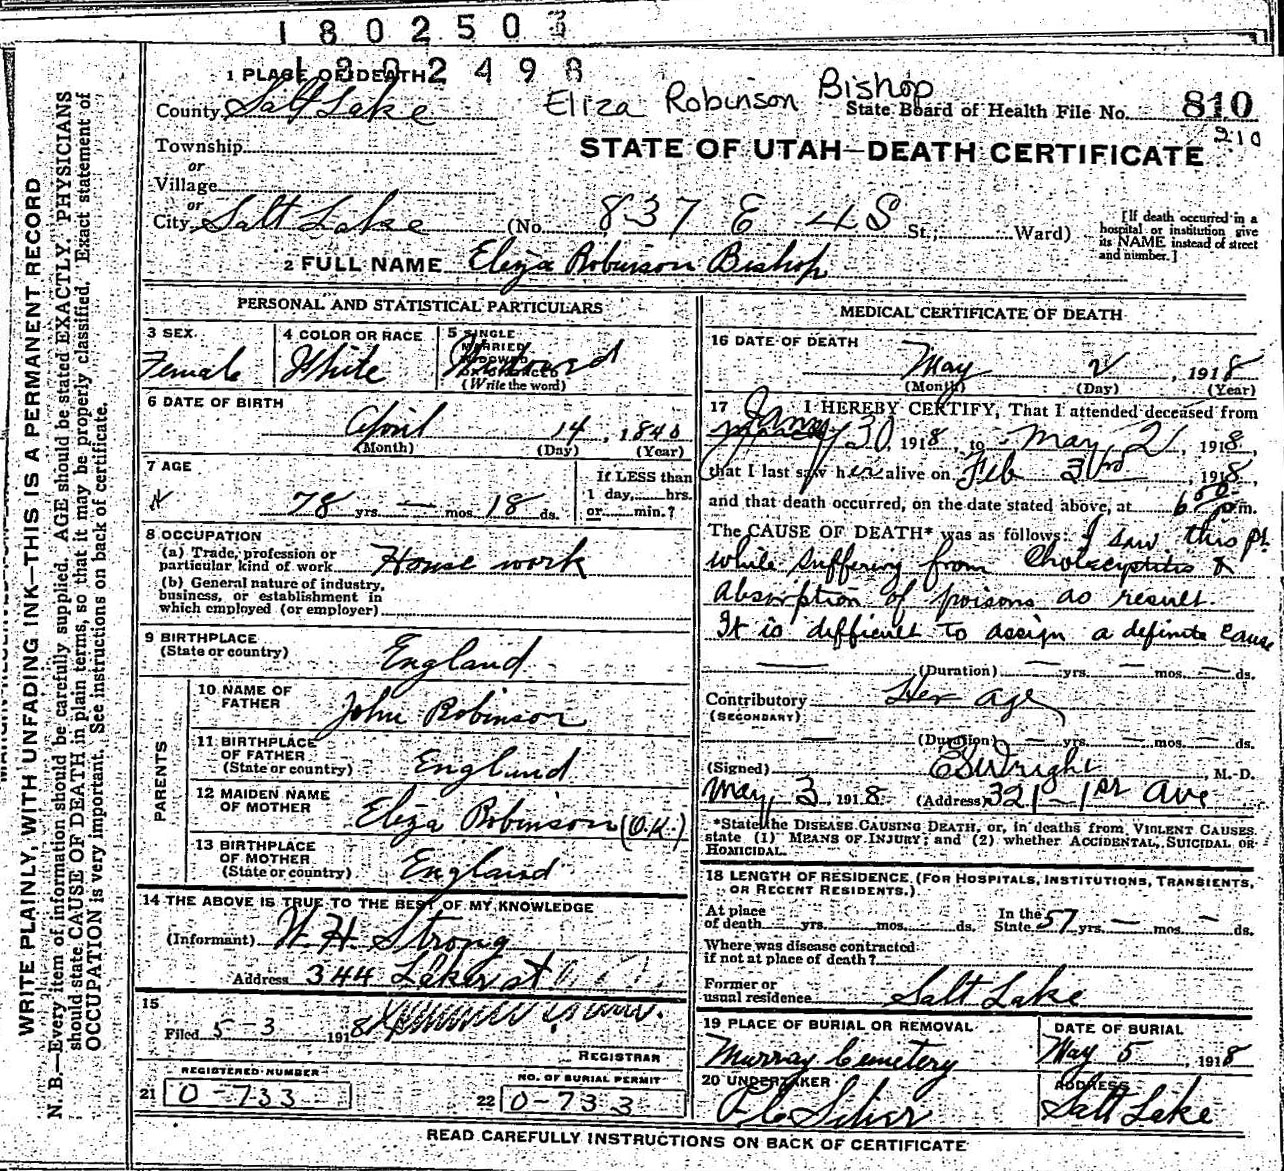 1802503
1802498
1 PLACE OF DEATH
County Salt Lake
Eliza Robinson Bishop
State Board of Health File No. 810
210
Township
STATE OF UTAH—DEATH CERTIFICATE
or
Village
or
City Salt Lake (No. 837 E 4 S St.; Ward)
[If death occurred in a hospital or institution give its NAME instead of street and number.]
2 FULL NAME Eliza Robinson Bishop
PERSONAL AND STATISTICAL PARTICULARS
3 SEX Female
4 COLOR OR RACE White
5 SINGLE MARRIED WIDOWED
(Write the word)
6 DATE OF BIRTH
April 14, 1840
(Month) (Day) (Year)
7 AGE
78 yrs. — mos. 18 ds.
If LESS than
1 day, hrs.
or min.?
8 OCCUPATION
(a) Trade, profession or
particular kind of work House work
(b) General nature of industry,
business, or establishment in
which employed (or employer)
9 BIRTHPLACE
(State or country) England
PARENTS
10 NAME OF
FATHER John Robinson
11 BIRTHPLACE
OF FATHER
(State or country) England
12 MAIDEN NAME
OF MOTHER Eliza Robinson (O.K.)
13 BIRTHPLACE
OF MOTHER
(State or country) England
14 THE ABOVE IS TRUE TO THE BEST OF MY KNOWLEDGE
(Informant) W. H. Strong
Address 344
15
Filed 5-3 1918
REGISTRAR
REGISTERED NUMBER
21 0-733
NO. OF BURIAL PERMIT
22 0-733
MEDICAL CERTIFICATE OF DEATH
16 DATE OF DEATH
May 2, 1918
(Month) (Day) (Year)
17 I HEREBY CERTIFY, That I attended deceased from
30, 1918, to May 2, 1918,
that I last saw her alive on Feb 3rd, 1918,
and that death occurred, on the date stated above, at 6 m.
The CAUSE OF DEATH* was as follows: I saw this pt.
while suffering from Cholecystitis &
absorption of poisons as result.
It is difficult to assign a definite cause
(Duration) — yrs. — mos. — ds.
Contributory Her age
(SECONDARY)
(Duration) — yrs. — mos. — ds.
(Signed) E S Wright, M.-D.
May 3 1918 (Address) 321—1st Ave
*State the DISEASE CAUSING DEATH, or, in deaths from VIOLENT CAUSES,
state (1) MEANS OF INJURY; and (2) whether ACCIDENTAL, SUICIDAL OR
HOMICIDAL.
18 LENGTH OF RESIDENCE (FOR HOSPITALS, INSTITUTIONS, TRANSIENTS,
OR RECENT RESIDENTS.)
At place
of death yrs. mos. ds.
In the
State 57 yrs. — mos. — ds.
Where was disease contracted
if not at place of death?
Former or
usual residence Salt Lake
19 PLACE OF BURIAL OR REMOVAL
Murray Cemetery
DATE OF BURIAL
May 5, 1918
20 UNDERTAKER
ADDRESS
Salt Lake
READ CAREFULLY INSTRUCTIONS ON BACK OF CERTIFICATE
WRITE PLAINLY, WITH UNFADING INK—THIS IS A PERMANENT RECORD
N. B.—Every item of information should be carefully supplied. AGE should be stated EXACTLY. PHYSICIANS
should state CAUSE OF DEATH in plain terms, so that it may be properly classified. Exact statement of
OCCUPATION is very important. See instructions on back of certificate.